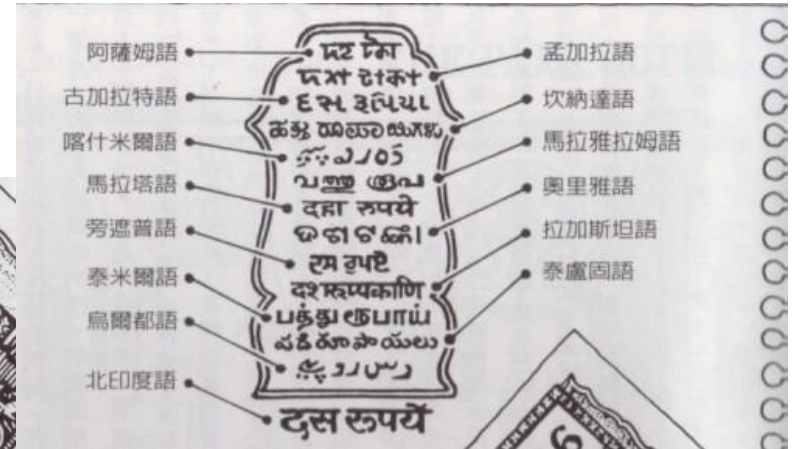 阿薩姆語
古加拉特語
喀什米爾語
馬拉塔語
旁遮普語
泰米爾語
烏爾都語
北印度語
দহ টকা
দশ টাকা
દસ રૂપિયા
ಹತ್ತು ರೂಪಾಯಿಗಳು
പത്തു രൂപ
दहा रुपये
ଦଶ ଟଙ୍କା
ਦਸ ਰੁਪਏ
दशरूप्यकाणि
பத்து ரூபாய்
పది రూపాయలు
दस रूपये
孟加拉語
坎納達語
馬拉雅拉姆語
奧里雅語
拉加斯坦語
泰盧固語